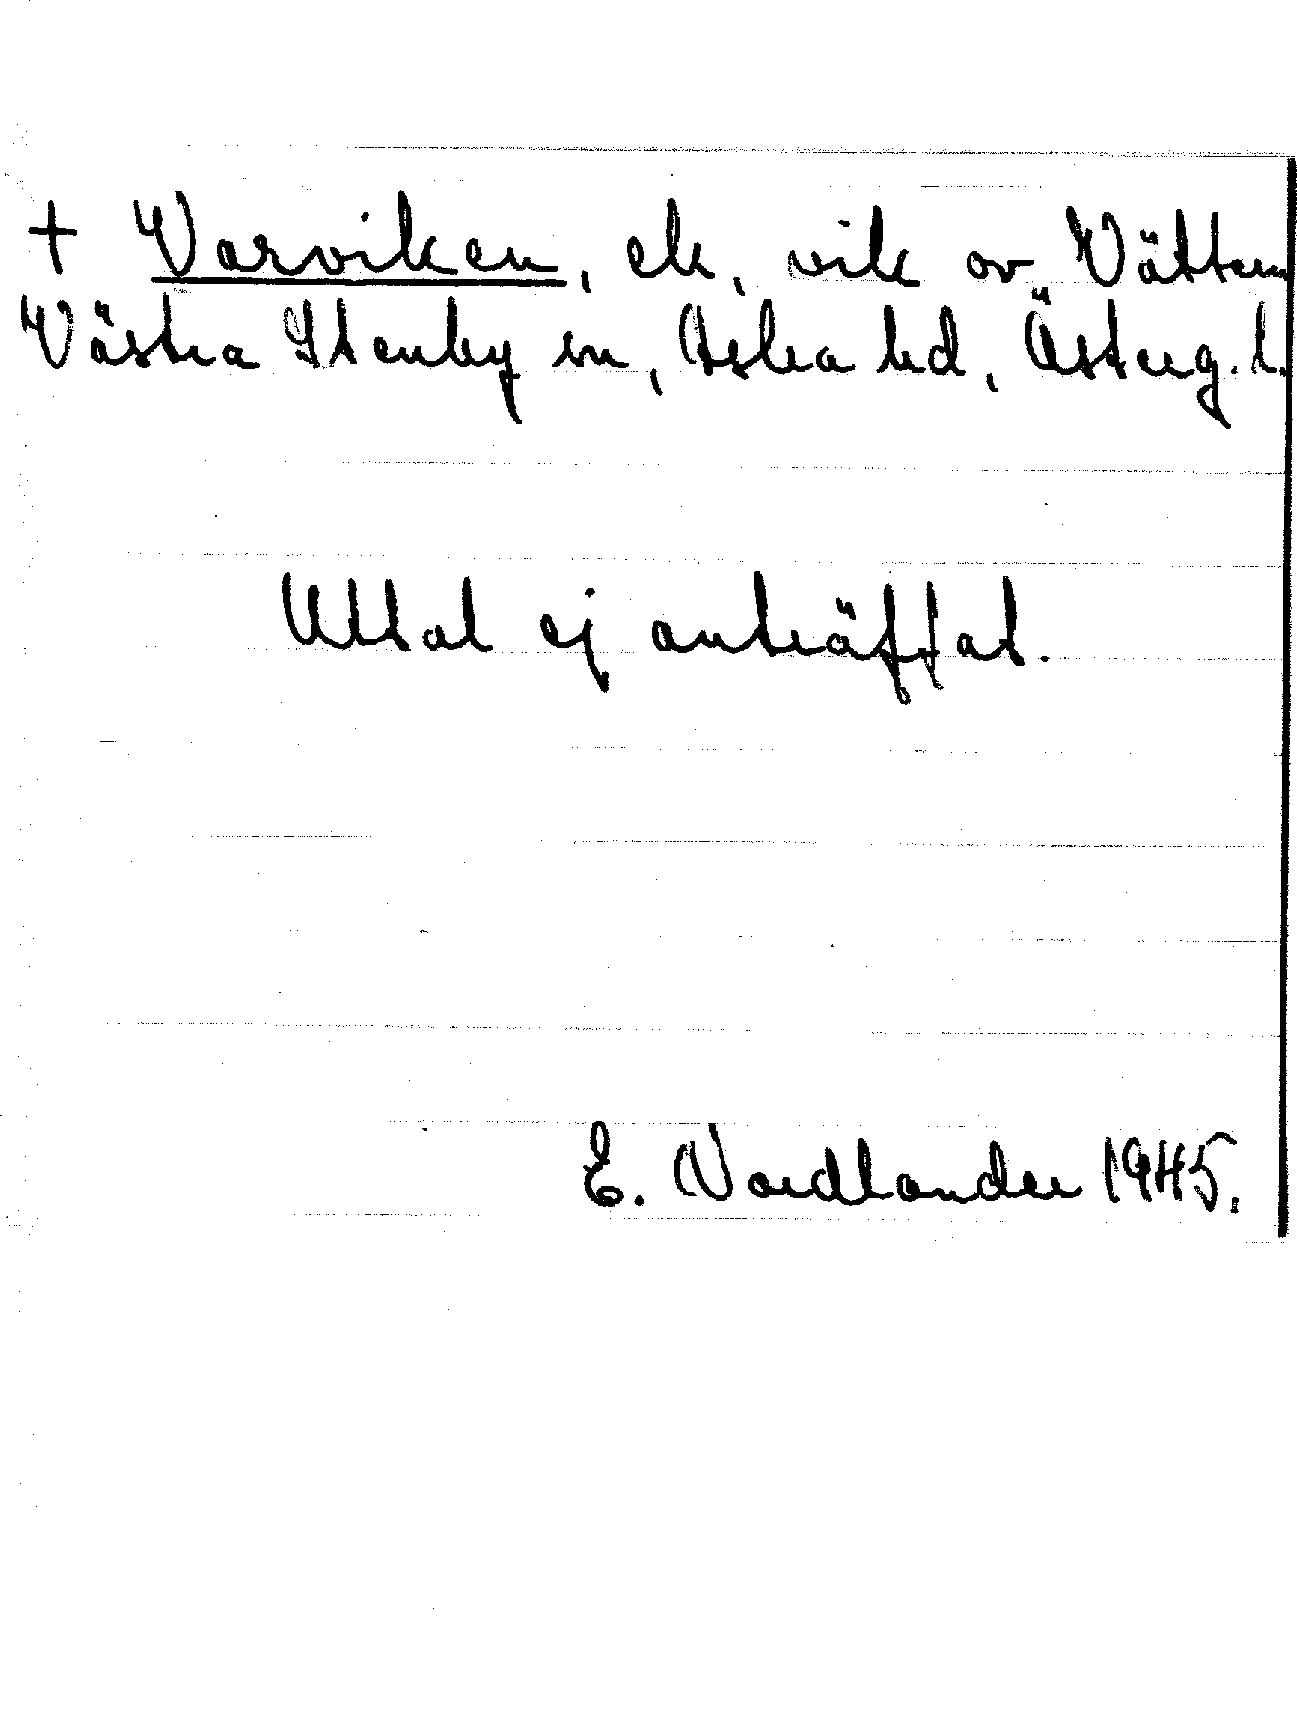 † Varviken, ek, vik av Vättern
Västra Stenby sn, Aska hd, Österg. l.
Uttal ej anträffat.
E. Nordlander 1945.